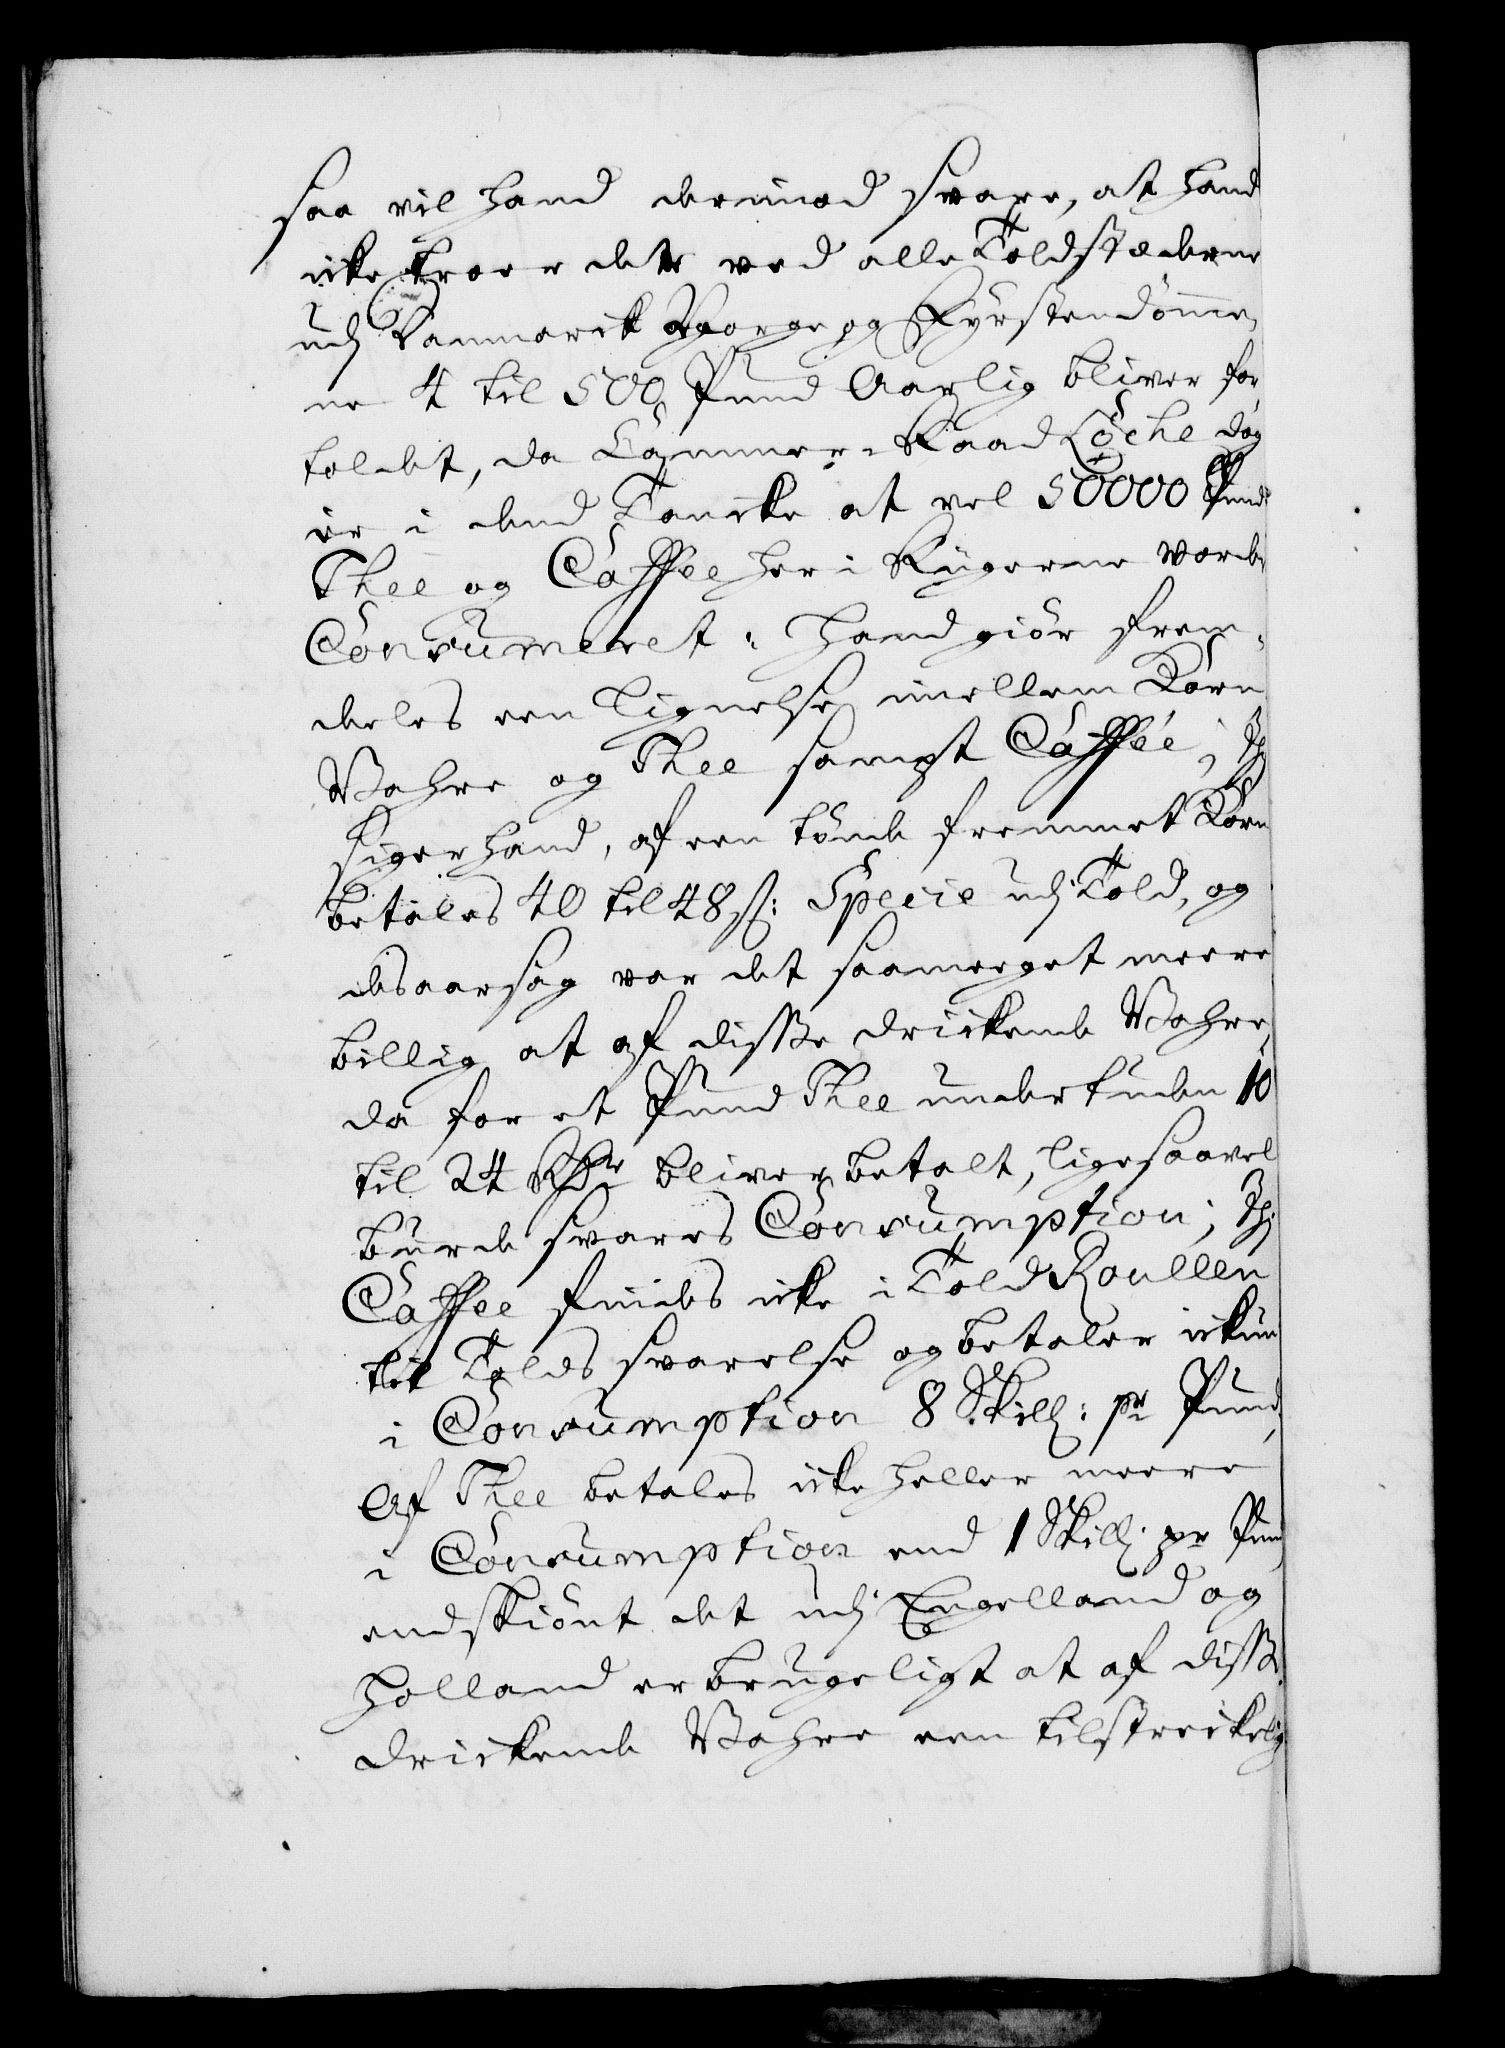 saa vil hand derimod svare, at hand
icke troer det ved alle Toldstæderne
udj Danmarck Norge og Fyrstendömme,
ne 4 til 500 Pund Aarlig bliver for
toldet, da Cammer-Raad Löche dog
er i dend Tancke at vel 50000 Pund
Thee og Caffee her i Rigerne vorder
Consumeret: Hand giör frem,
deles een Lignelse imellem Korn
Vahre og Thee sampt Caffée, Thj
siger hand, af een tönde fremmet Korn
betales 40 til 48 ß: Specie udj Told, og
desaarsag var det saameeget meere
billig at af disse drickende Vahre,
da for et Pund Thee undertiden 10
til 24 Rdr bliver betalt, ligesaavel
burde svares Consumption; Thj
Caffee findes icke i Told Roullen
til Tolds svarelse og betaler ickun
i Consumption 8 Skill: pr Pund,
Af Thee betales icke heller meere
i Consumption end 1 Skill: pr Pund
endskiönt det udj Engelland og
Holland er brugeligt at af disse
drickende Vahre een tilstreckelig